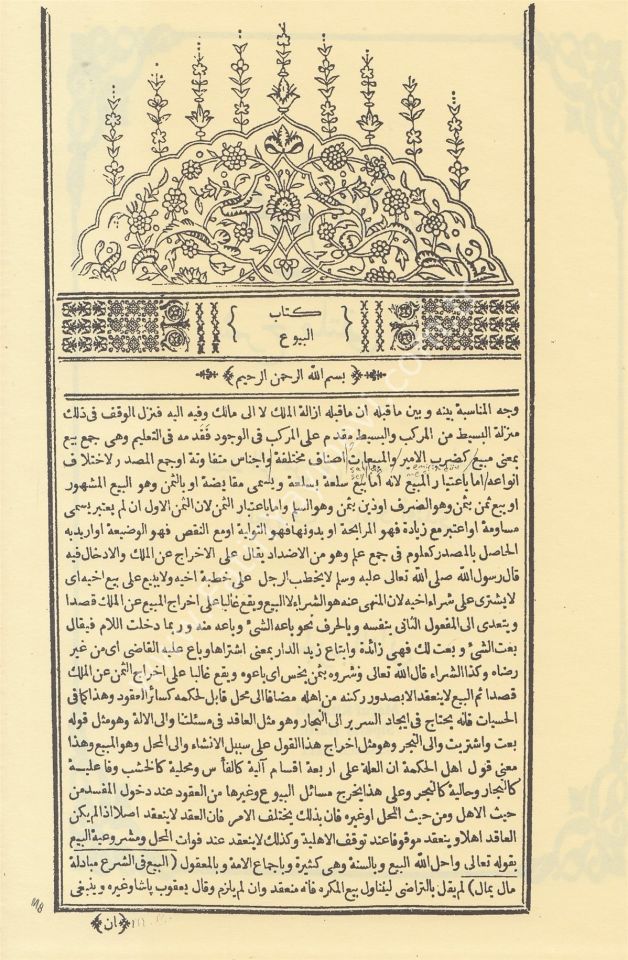 كتاب
البيوع
بسم الله الرحمن الرحيم
وجه المناسبة بينه وبين ما قبله ان ما قبله ازالة الملك لا الى مالك وفيه اليه فنزل الوقف فى ذلك
منزلة البسيط من المركب والبسيط مقدم على المركب فى الوجود فقدمه فى التعليم وهى جمع بيع
بمعنى مبيع كضرب الامير والمبيعات اصناف مختلفة واجناس متفاوتة او جمع المصدر لاختلاف
انواعه اما باعتبار المبيع لانه اما بيع سلعة بسلعة ويسمى مقايضة او بالثمن وهو البيع المشهور
او بيع ثمن بثمن وهو الصرف او دين بثمن وهو السلم واما باعتبار الثمن لان الثمن الاول ان لم يعتبر يسمى
مساومة او اعتبر مع زيادة فهو المرابحة او بدونها فهو التولية او مع النقص فهو الوضيعة او اريد به
الحاصل بالمصدر كعلوم فى جمع علم وهو من الاضداد يقال على الاخراج عن الملك والادخال فيه
قال رسول الله صلى الله تعالى عليه وسلم لا يخطب الرجل على خطبة اخيه ولا يبع على بيع اخيه اى
لا يشترى على شراء اخيه لان المنهى عنه هو الشراء لا البيع ويقع غالبا على اخراج المبيع عن الملك قصدا
ويتعدى الى المفعول الثانى بنفسه وبالحرف نحو باعه الشئ وباعه منه وربما دخلت اللام فيقال
بعت الشئ وبعت لك فهى زائدة وابتاع زيد الدار بمعنى اشتراها وباع عليه القاضى اى من غير
رضاه وكذا الشراء قال الله تعالى وشروه بثمن بخس اى باعوه ويقع غالبا على اخراج الثمن عن الملك
قصدا ثم البيع لا ينعقد الا بصدور ركنه من اهله مضافا الى محل قابل لحكمه كسائر العقود وهذا كما فى
الحسيات فانه يحتاج فى ايجاد السرير الى النجار وهو مثل العاقد فى مسئلتنا والى الآلة وهو مثل قوله
بعت واشتريت والى النجر وهو مثل اخراج هذا القول على سبيل الانشاء والى المحل وهو المبيع وهذا
معنى قول اهل الحكمة ان العلة على اربعة اقسام آلية كالفأس ومحلية كالخشب وفاعلية
كالنجار وحالية كالنجر وعلى هذا يخرج مسائل البيوع وغيرها من العقود عند دخول المفسد من
حيث الاهل ومن حيث المحل او غيره فان بذلك يختلف الامر فان العقد لا ينعقد اصلا اذا لم يكن
العاقد اهلا وينعقد موقوفا عند توقف الاهلية وكذلك لا ينعقد عند فوات المحل ومشروعية البيع
بقوله تعالى واحل الله البيع وبالسنة وهى كثيرة وباجماع الامة وبالمعقول (البيع فى الشرع مبادلة
مال بمال) لم يقل بالتراضى ليتناول بيع المكره فانه منعقد وان لم يلزم وقال يعقوب پاشا وغيره وينبغى
﴿ان﴾